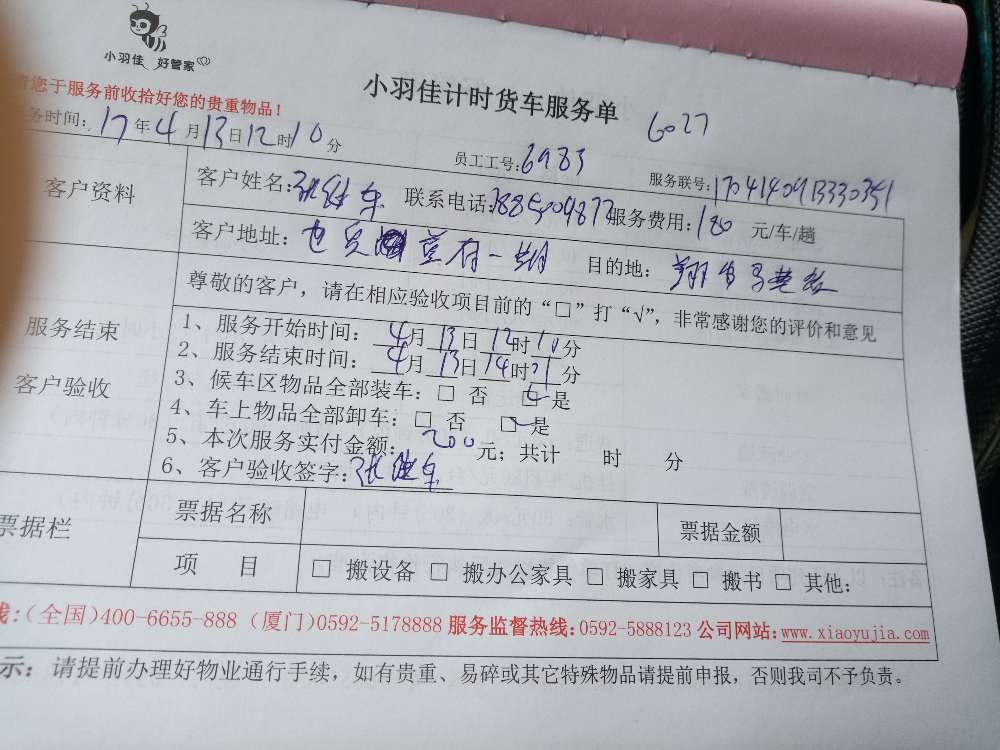 小羽佳 好管家
小羽佳计时货车服务单
6027
请您于服务前收拾好您的贵重物品！
务时间：17年4月13日12时10分
员工工号：6983
服务联号：1704140913330351
客户资料
客户姓名： 联系电话： 服务费用：180 元/车/趟
客户地址： 目的地：
尊敬的客户，请在相应验收项目前的“□”打“√”，非常感谢您的评价和意见
服务结束
客户验收
1、服务开始时间：4月13日12时10分
2、服务结束时间：4月13日14时21分
3、候车区物品全部装车：□ 否 ☑ 是
4、车上物品全部卸车：□ 否 ☑ 是
5、本次服务实付金额：200元；共计 时 分
6、客户验收签字：
票据栏
票据名称 票据金额
项 目 □ 搬设备 □ 搬办公家具 □ 搬家具 □ 搬书 □ 其他：
线：（全国）400-6655-888 （厦门）0592-5178888 服务监督热线：0592-5888123 公司网站：www.xiaoyujia.com
示：请提前办理好物业通行手续，如有贵重、易碎或其它特殊物品请提前申报，否则我司不予负责。